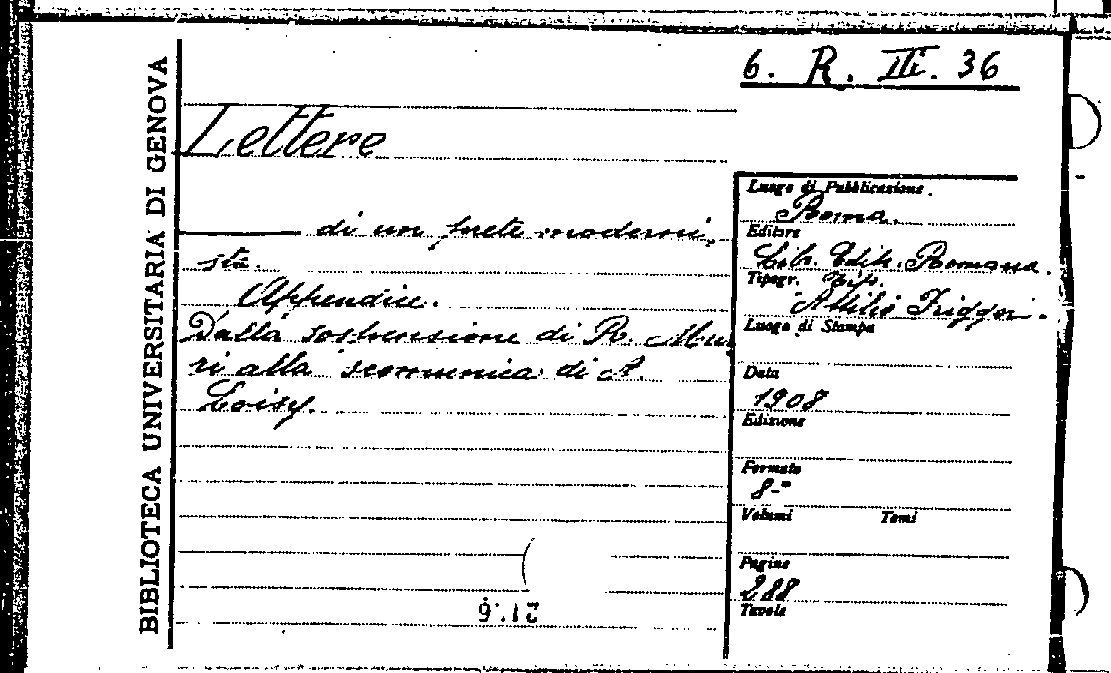 6. R. III. 36
BIBLIOTECA UNIVERSITARIA DI GENOVA
Lettere
di un prete moderni
sta.
Appendice.
Dalla sospensione di R. Mur
ri alla scomunica di A.
Loisy.
Luogo di Pubblicazione.
Roma.
Editore
Lib. Edit. Romana.
Tipogr. Tip.
Attilio Friggeri.
Luogo di Stampa
Data
1908
Edizione
Formato
8-°
Volumi Tomi
Pagine
288
Tavole